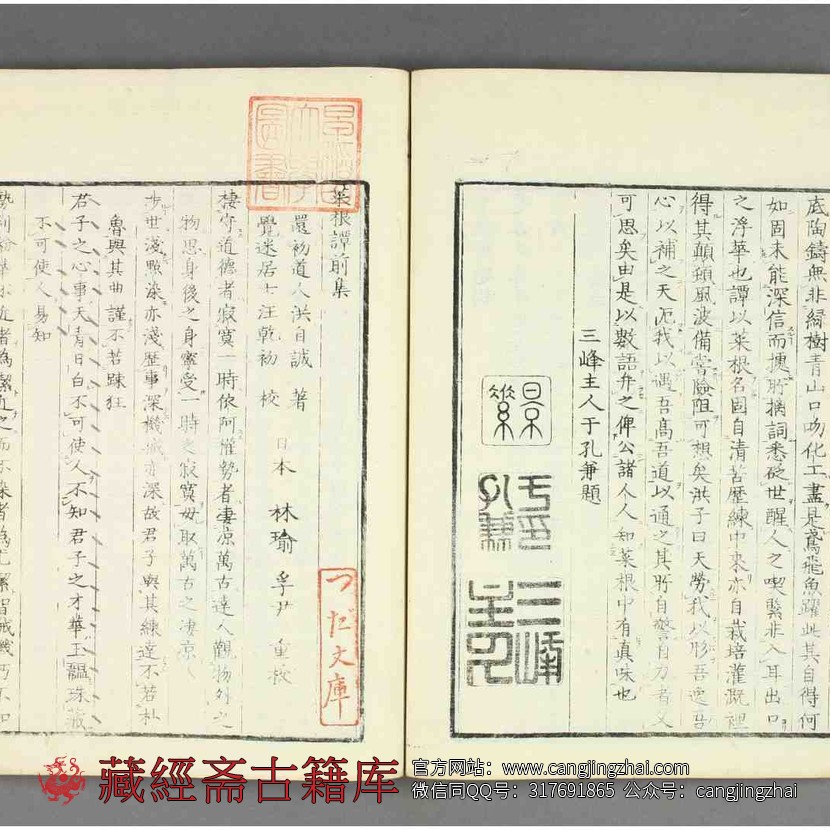 底陶鑄無非綠樹青山口吻化工盡是鳶飛魚躍此其自得何
如固未能深信而據所摛詞悉砭世醒人之喫緊非入耳出口
之浮華也譚以菜根名固自清苦歷練中來亦自栽培灌溉裡
得其顛頓風波備嘗險阻可想矣洪子曰天勞我以形吾逸吾
心以補之天阨我以遇吾高吾道以通之其所自警自力者又
可思矣由是以數語弁之俾公諸人人知菜根中有真味也
三峰主人于孔兼題
于孔兼印
三峰主人
菜根譚前集
還初道人洪自誠 著
覺迷居士汪乾初 校
日本 林瑜 孚尹 重校
棲守道德者寂寞一時依阿權勢者凄涼萬古達人觀物外之
物思身後之身寧受一時之寂寞毋取萬古之凄涼
涉世淺點染亦淺歷事深機械亦深故君子與其練達不若朴
魯與其曲謹不若踈狂
君子之心事天青日白不可使人不知君子之才華玉韞珠藏
不可使人易知
勢利紛華不近者為潔近之而不染者為尤潔智械機巧不知
つだ文庫
藏經斋古籍库
官方网站：www.cangjingzhai.com
微信同QQ号：317691865 公众号：cangjingzhai